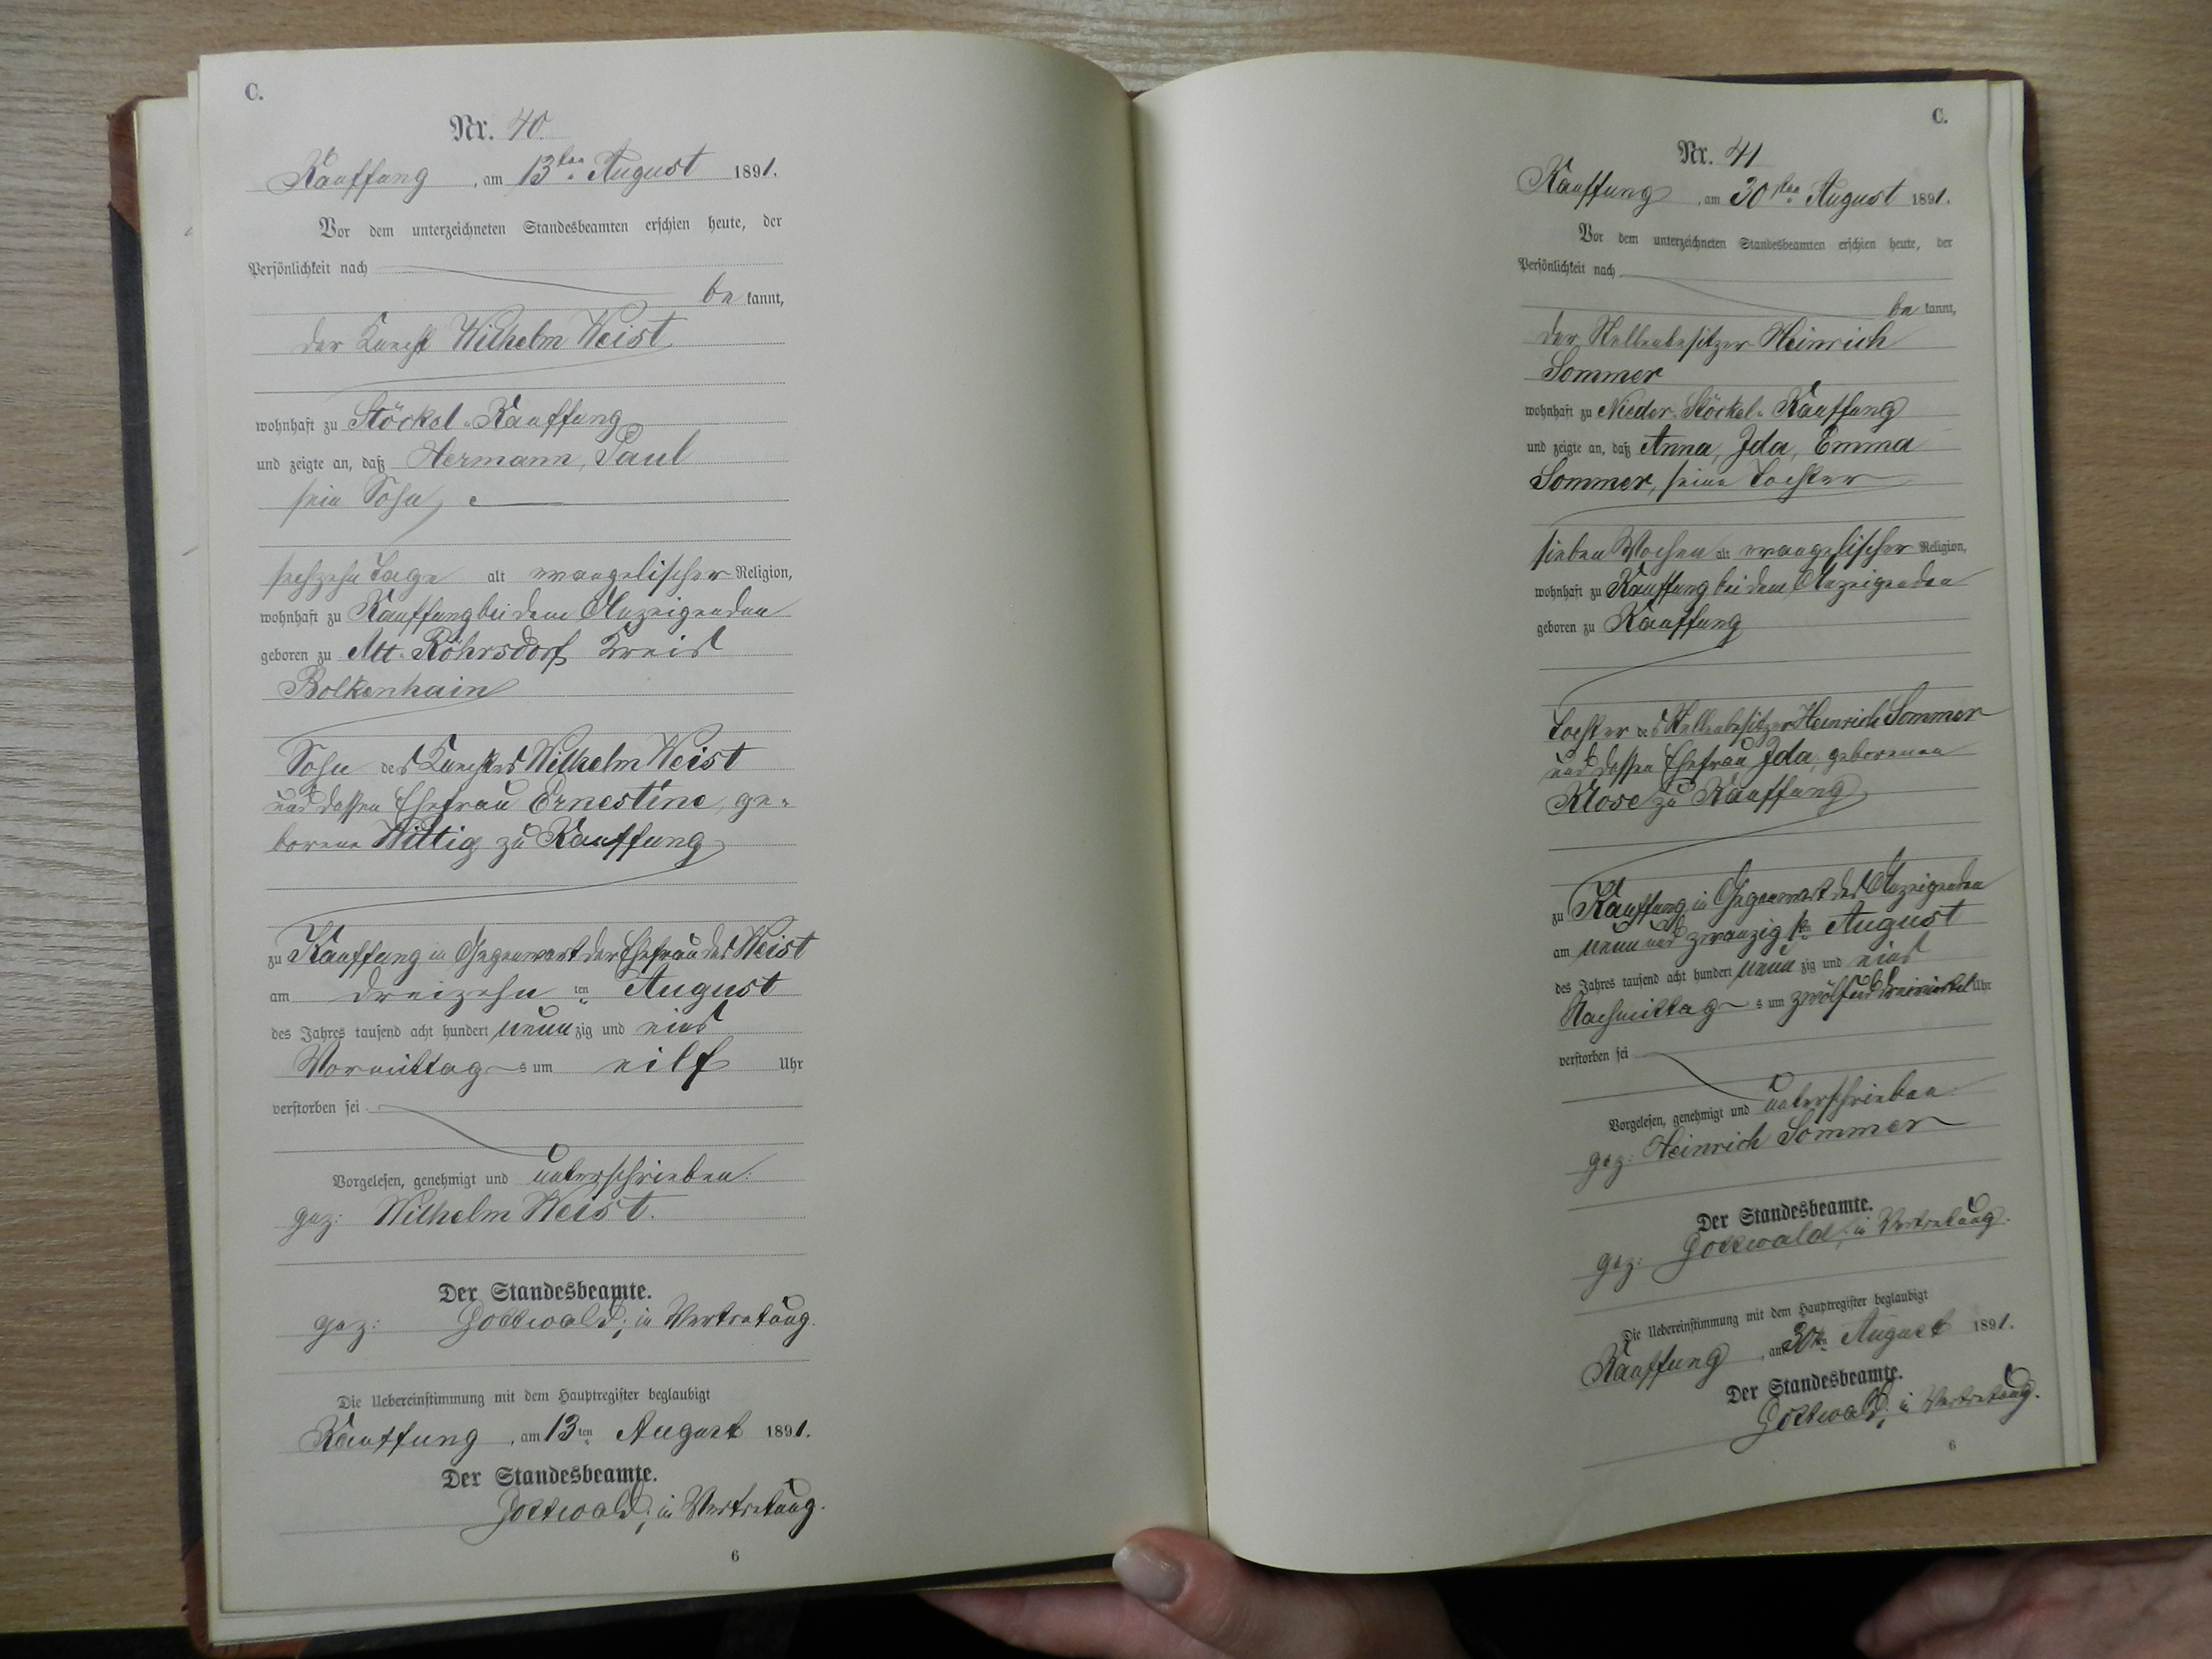 C.
Nr. 40.
Kauffung, am 13ten August 1891.
Vor dem unterzeichneten Standesbeamten erschien heute, der
Persönlichkeit nach
be kannt,
der Knecht Wilhelm Weist
wohnhaft zu Stöckel-Kauffung
und zeigte an, daß Hermann, Paul
sein Sohn,
sechzehn Tage alt evangelischer Religion,
wohnhaft zu Kauffung bei dem Anzeigenden
geboren zu Alt-Röhrsdorf, Kreis
Bolkenhain
Sohn des Knechtes Wilhelm Weist
und dessen Ehefrau Ernestine, ge-
borene Wittig zu Kauffung
zu Kauffung in Gegenwart der Ehefrau des Weist
am dreizehn ten August
des Jahres tausend acht hundert neun zig und eins
Vormittag s um eilf Uhr
verstorben sei
Vorgelesen, genehmigt und unterschrieben:
gez: Wilhelm Weist.
Der Standesbeamte.
gez: Gottwald, in Vertretung.
Die Uebereinstimmung mit dem Hauptregister beglaubigt
Kauffung, am 13ten August 1891.
Der Standesbeamte.
Gottwald, in Vertretung.
6
C.
Nr. 41
Kauffung, am 30ten August 1891.
Vor dem unterzeichneten Standesbeamten erschien heute, der
Persönlichkeit nach
be kannt,
der Stellenbesitzer Heinrich
Sommer
wohnhaft zu Nieder-Stöckel-Kauffung
und zeigte an, daß Anna, Ida, Emma
Sommer, seine Tochter
sieben Wochen alt evangelischer Religion,
wohnhaft zu Kauffung bei dem Anzeigenden
geboren zu Kauffung
Tochter des Stellenbesitzer Heinrich Sommer
und dessen Ehefrau Ida, geborenen
Klose zu Kauffung
zu Kauffung in Gegenwart des Anzeigenden
am neun und zwanzig sten August
des Jahres tausend acht hundert neun zig und eins
Nachmittag s um zwölf und dreiviertel Uhr
verstorben sei
Vorgelesen, genehmigt und unterschrieben
gez: Heinrich Sommer
Der Standesbeamte.
gez: Gottwald, in Vertretung.
Die Uebereinstimmung mit dem Hauptregister beglaubigt
Kauffung, am 30ten August 1891.
Der Standesbeamte.
Gottwald, in Vertretung.
6